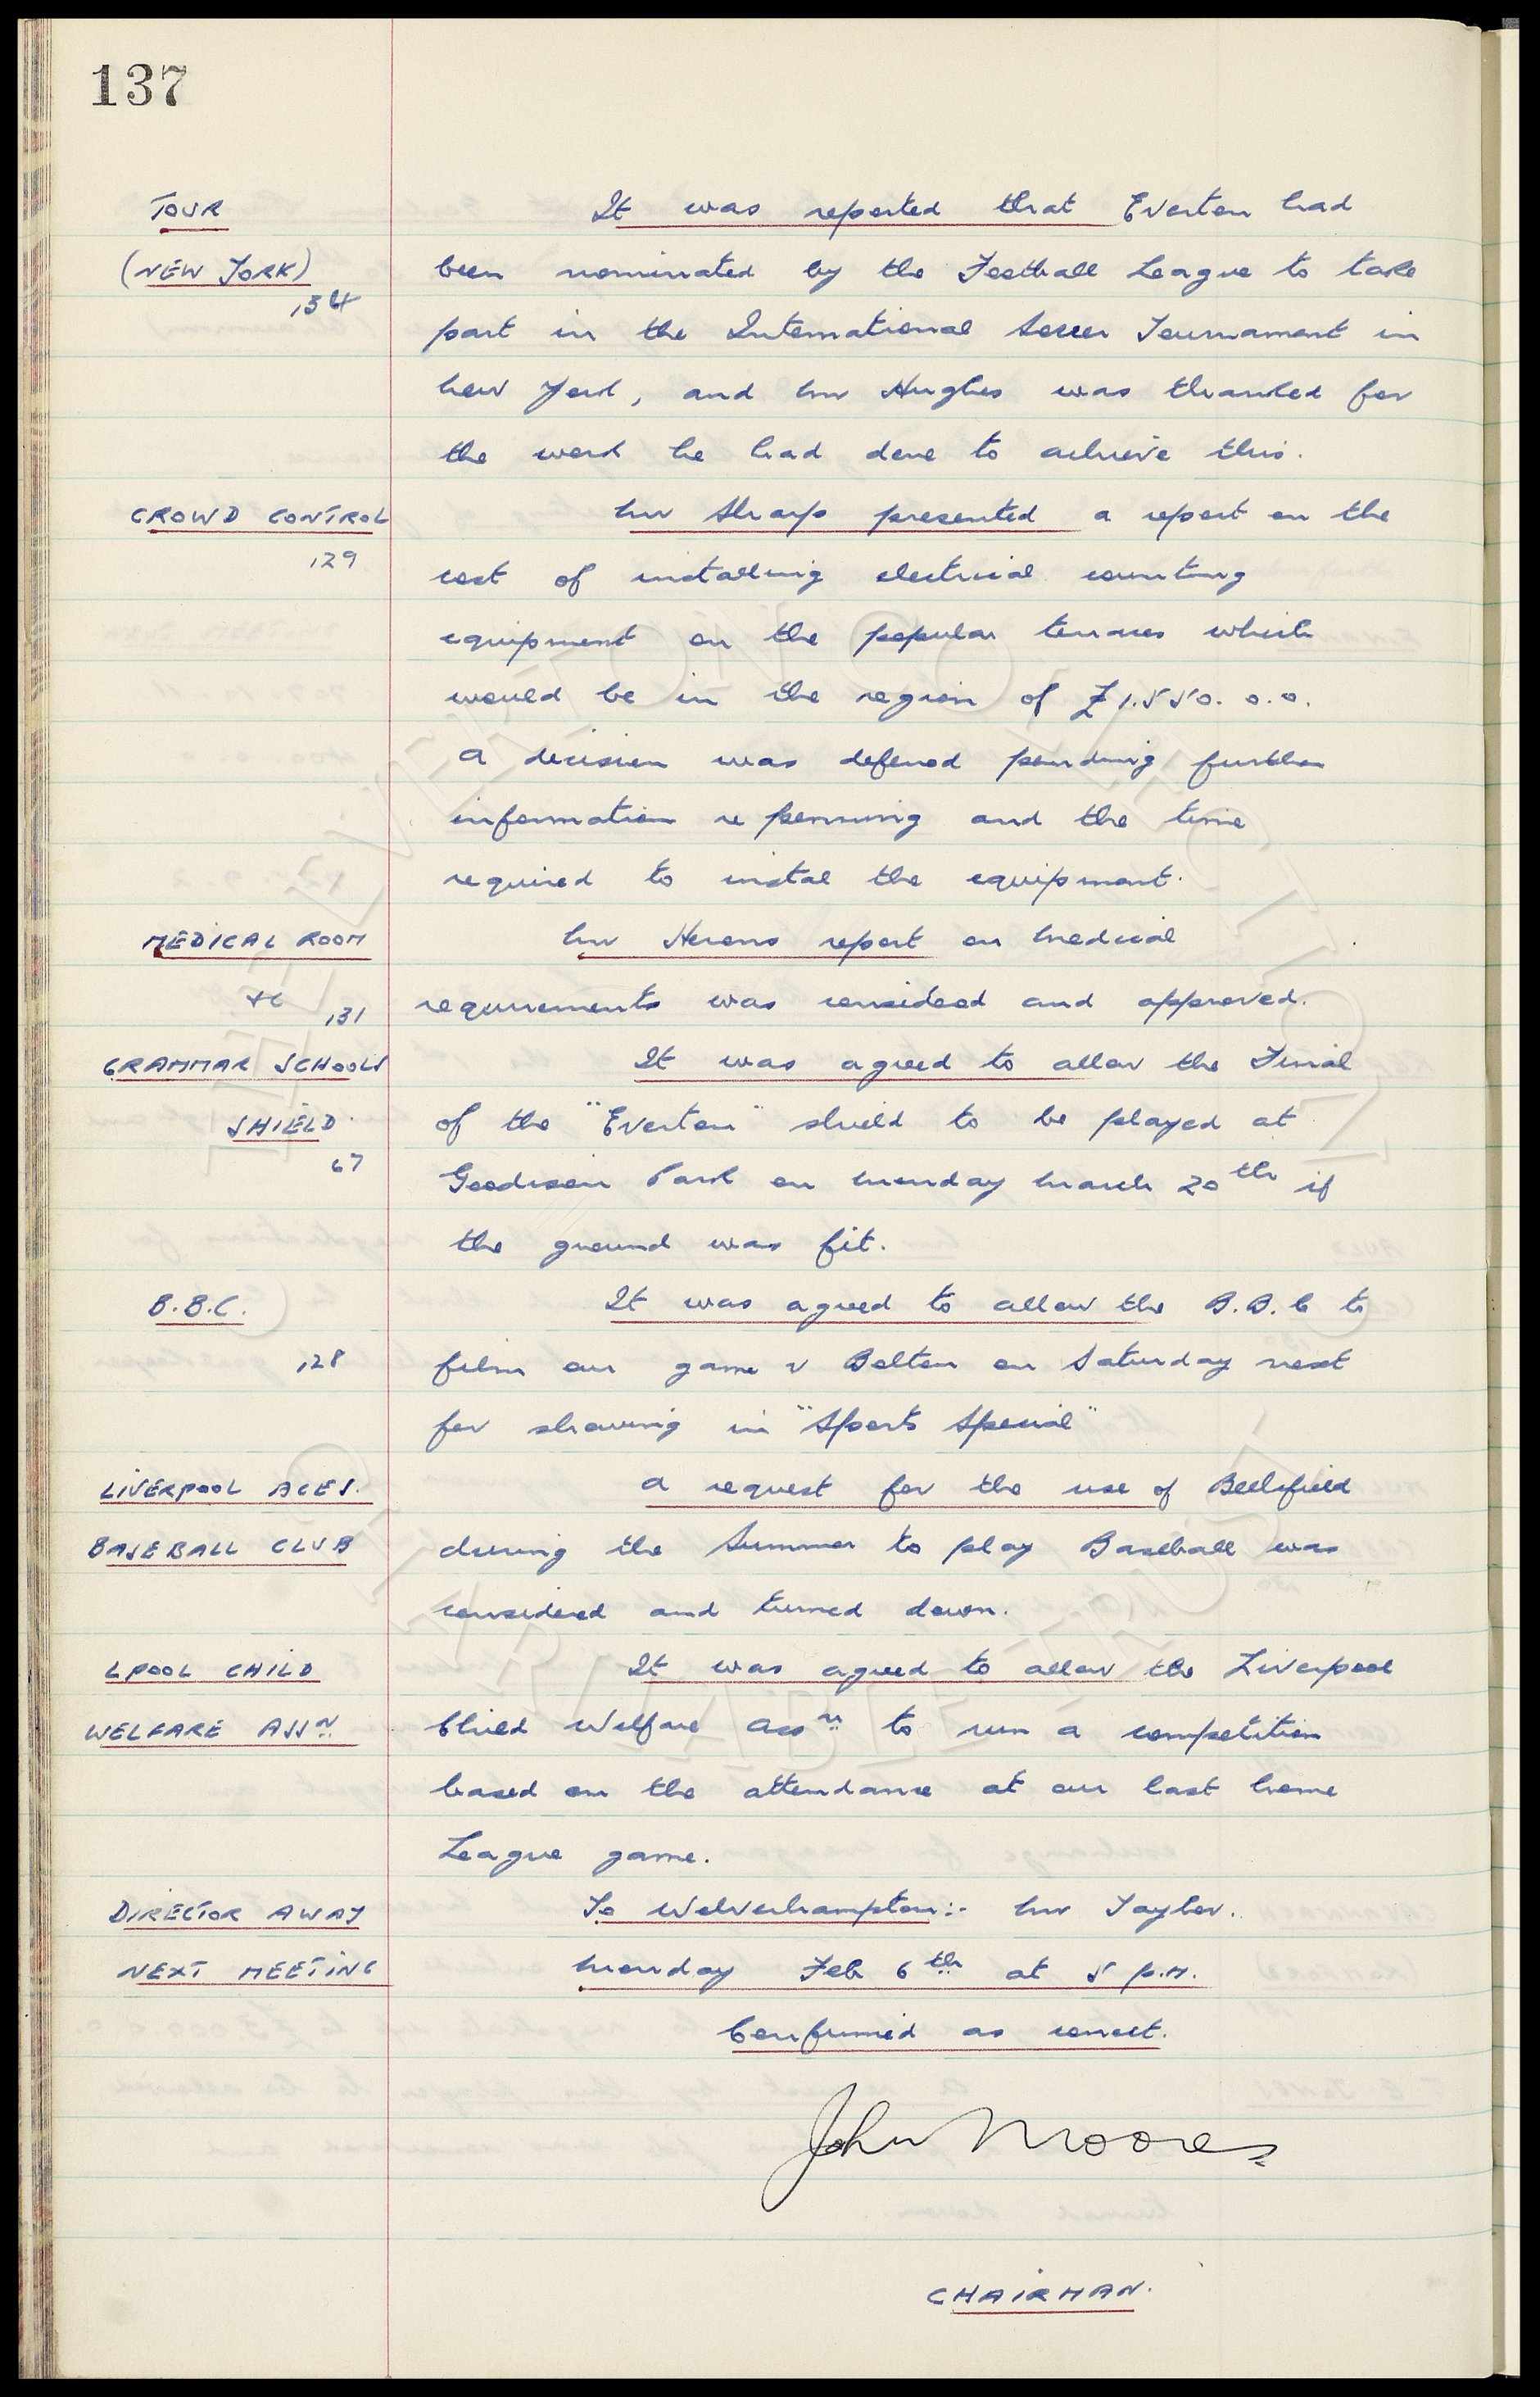 137
TOUR It was reported that Everton had
(NEW YORK) been nominated by the Football League to take
134
part in the International Soccer Tournament in
New York, and Mr Hughes was thanked for
the work he had done to achieve this.
CROWD CONTROL Mr Sharp presented a report on the
129 cost of installing electrical counting
equipment on the popular terraces which
would be in the region of £1.550. 0.0.
A decision was deferred pending further
information re penning and the time
required to instal the equipment.
MEDICAL ROOM Mr Herons report on Medical
131 requirements was considered and approved.
GRAMMAR SCHOOLS It was agreed to allow the Final
SHIELD of the "Everton" shield to be played at
67 Goodison Park on Monday March 20th if
the ground was fit.
B.B.C. It was agreed to allow the B.B.C to
128 film our game v Bolton on Saturday next
for showing in "Sports Special"
LIVERPOOL ACES. A request for the use of Bellefield
BASEBALL CLUB during the Summer to play Baseball was
considered and turned down.
LPOOL CHILD It was agreed to allow the Liverpool
WELFARE ASSN Child Welfare Assn to run a competition
based on the attendance at our last home
League game.
DIRECTOR AWAY To Wolverhampton:- Mr Taylor.
NEXT MEETING Monday Feb 6th at 5 p.m.
Confirmed as correct.
John Moores
CHAIRMAN.